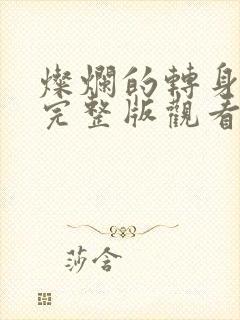 燦爛的轉身
完整版觀看
莎含